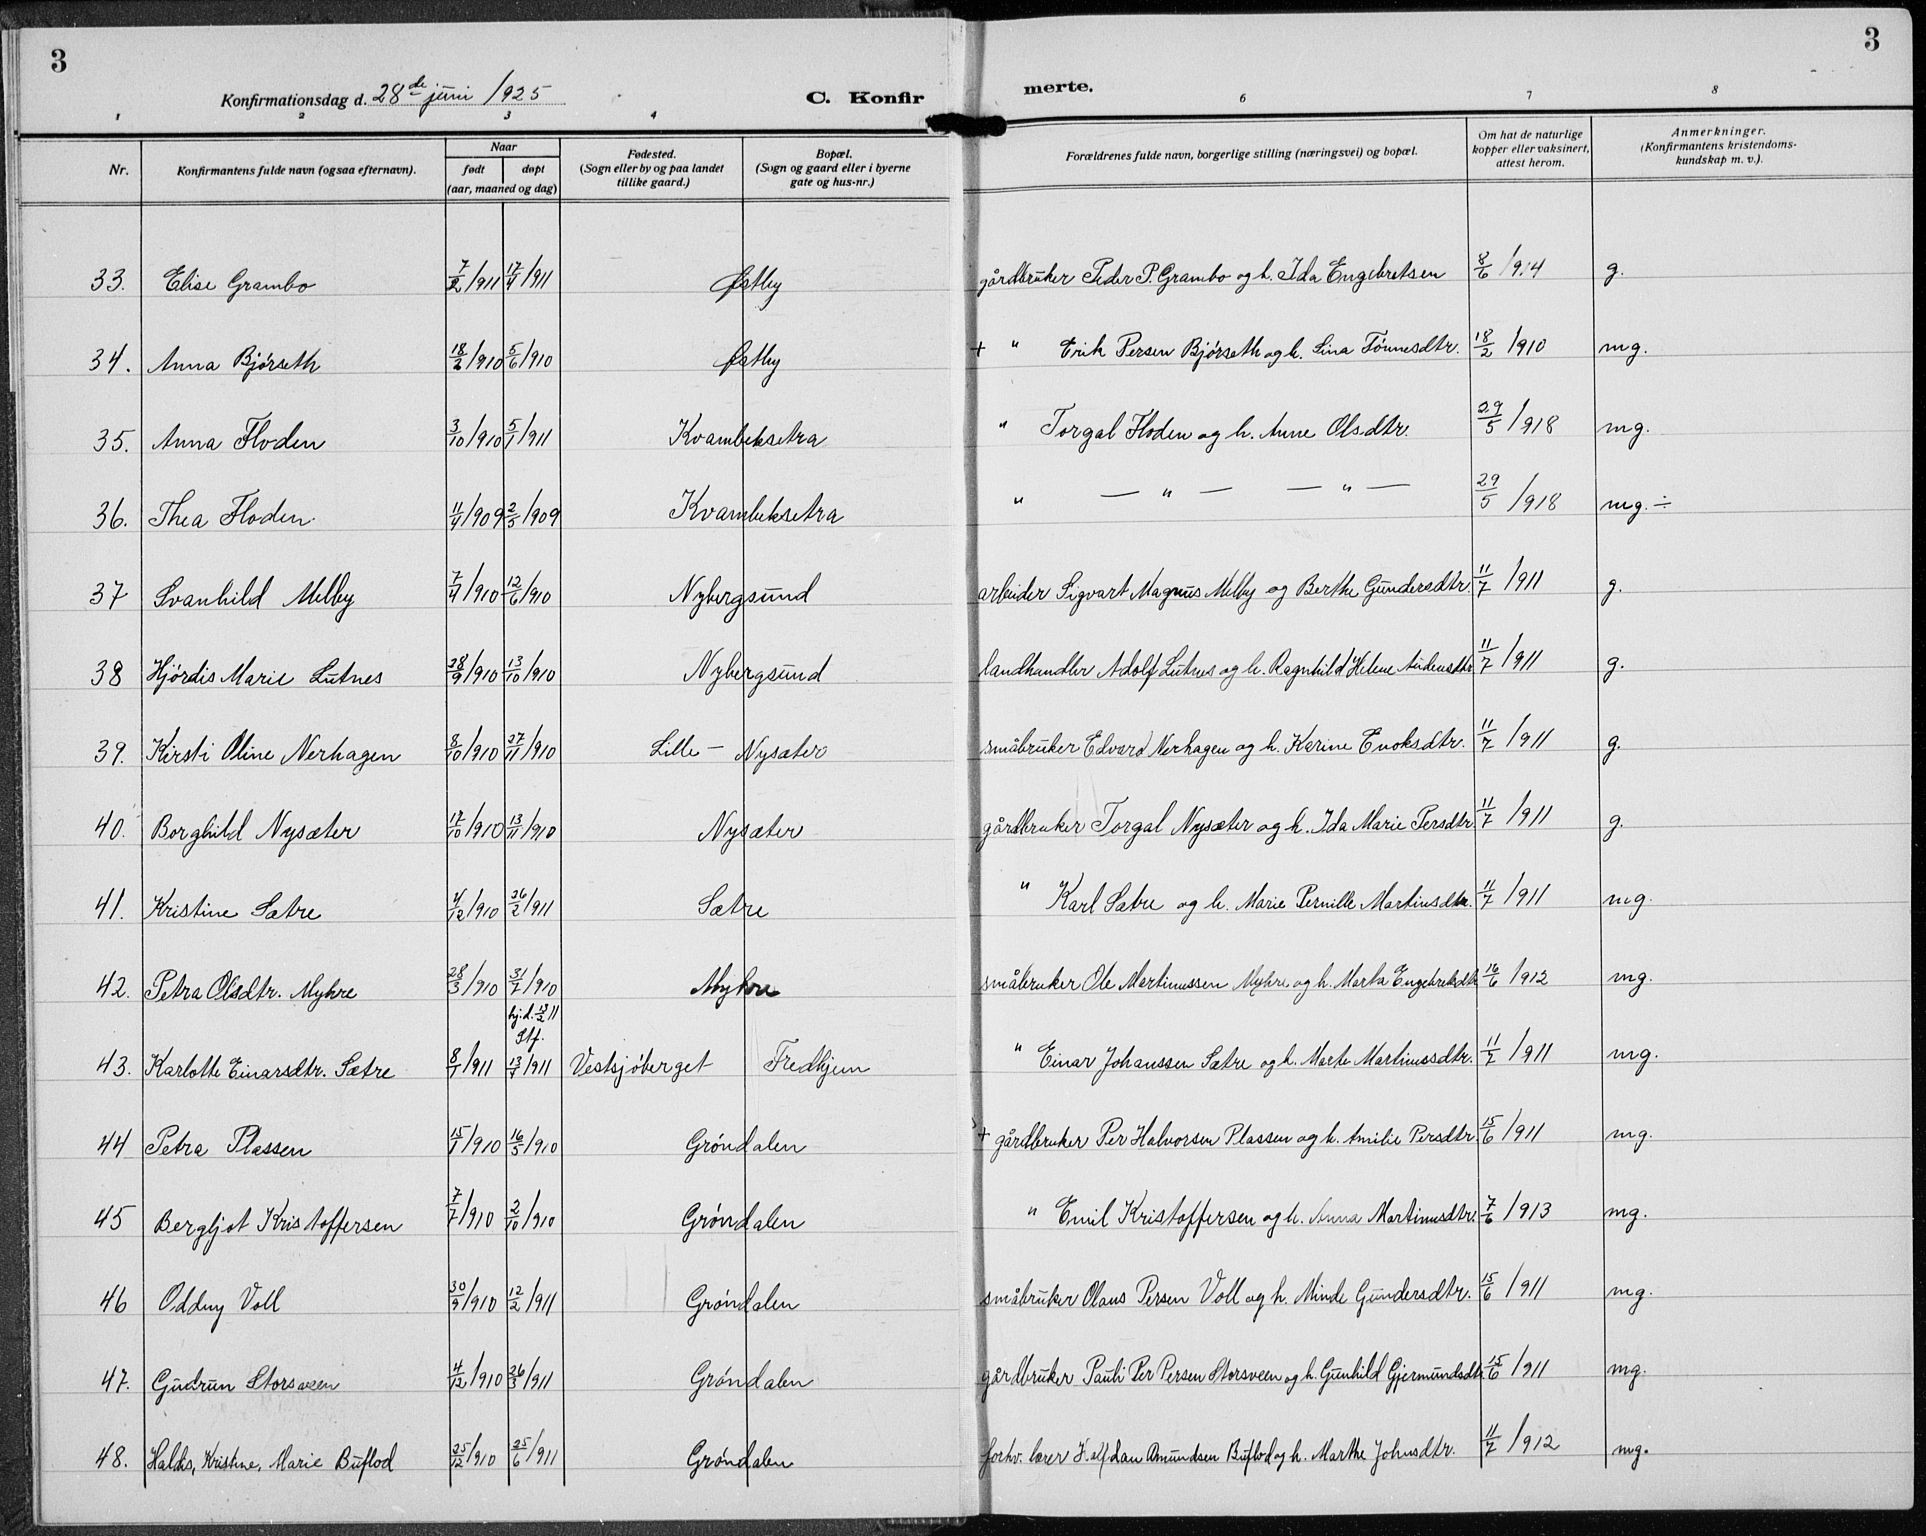 3
3
Konfirmationsdag d. 28de juni 1925
C. Konfir merte.
1 2 3 4 6 7 8
Nr.
Konfirmantens fulde navn (ogsaa efternavn).
Naar
født døpt
(aar, maaned og dag)
Fødested.
(Sogn eller by og paa landet
tillike gaard.)
Bopæl.
(Sogn og gaard eller i byerne
gate og hus-nr.)
Forældrenes fulde navn, borgerlige stilling (næringsvei) og bopæl.
Om hat de naturlige
kopper eller vaksinert,
attest herom.
Anmerkninger.
(Konfirmantens kristendoms-
kundskap m. v.).
33. Elise Grambo 7/2 1911 17/4 1911 Østby gårdbruker Peder P. Grambo og h. Ida Engebretsen 8/6 1914 g.
34. Anna Bjørseth 18/2 1910 5/6 1910 Østby + " Erik Persen Bjørseth og h. Lina Tønnesdtr. 18/2 1910 mg.
35. Anna Floden 3/10 1910 5/1 1911 Kvambeksetra " Torgal Floden og h. Anne Olsdtr. 29/5 1918 mg.
36. Thea Floden 11/4 1909 2/5 1909 Kvambeksetra " — " — — " — 29/5 1918 mg. ÷
37 Svanhild Melby 7/4 1910 12/6 1910 Nybergsund arbeider Sigvart Magnus Melby og Berthe Gundersdtr. 11/7 1911 g.
38 Hjørdis Marie Lutnes 28/9 1910 13/10 1910 Nybergsund landhandler Adolf Lutnes og h. Ragnhild Helene Audensdtr 11/7 1911 g.
39. Kirsti Oline Nerhagen 8/10 1910 27/11 1910 Lille - Nysæter småbruker Edvard Nerhagen og h. Karine Enoksdtr. 11/7 1911 g.
40. Borghild Nysæter 17/10 1910 13/11 1910 Nysæter gårdbruker Torgal Nysæter og h. Ida Marie Persdtr 11/7 1911 g.
41. Kristine Sætre 4/12 1910 26/2 1911 Sætre " Karl Sætre og h. Marie Pernille Martinusdtr. 11/7 1911 mg.
42. Petra Olsdtr. Myhre 28/3 1910 31/7 1910 Myhre småbruker Ole Martinussen Myhre og h. Marta Engebretsdtr 16/6 1912 mg.
hj.d.
Stf.
43. Karlotte Einarsdtr. Sætre 8/1 1911 13/4 1911 Vestsjøberget Fredhjem " Einar Johanssen Sætre og h. Marte Martinusdtr. 11/7 1911 mg.
44 Petra Plassen 15/1 1910 16/5 1910 Grøndalen + gårdbruker Per Halvorsen Plassen og h. Amilie Persdtr 15/6 1911 mg.
45 Bergljot Kristoffersen 7/7 1910 2/10 1910 Grøndalen " Emil Kristoffersen og h. Anna Martinusdtr. 7/6 1913 mg.
46 Oddny Voll 30/9 1910 12/2 1911 Grøndalen småbruker Olaus Persen Voll og h. Minde Gundersdtr. 15/6 1911 mg.
47. Gudrun Storsveen 4/12 1910 26/3 1911 Grøndalen gårdbruker Pauli Per Persen Storsveen og h. Gunhild Gjermundsdtr 15/6 1911 mg.
48. Haldis, Kristine, Marie Buflod 25/12 1910 25/6 1911 Grøndalen forhv. lærer Halfdan Amundsen Buflod og h. Marthe Johnsdtr. 11/7 1912 mg.